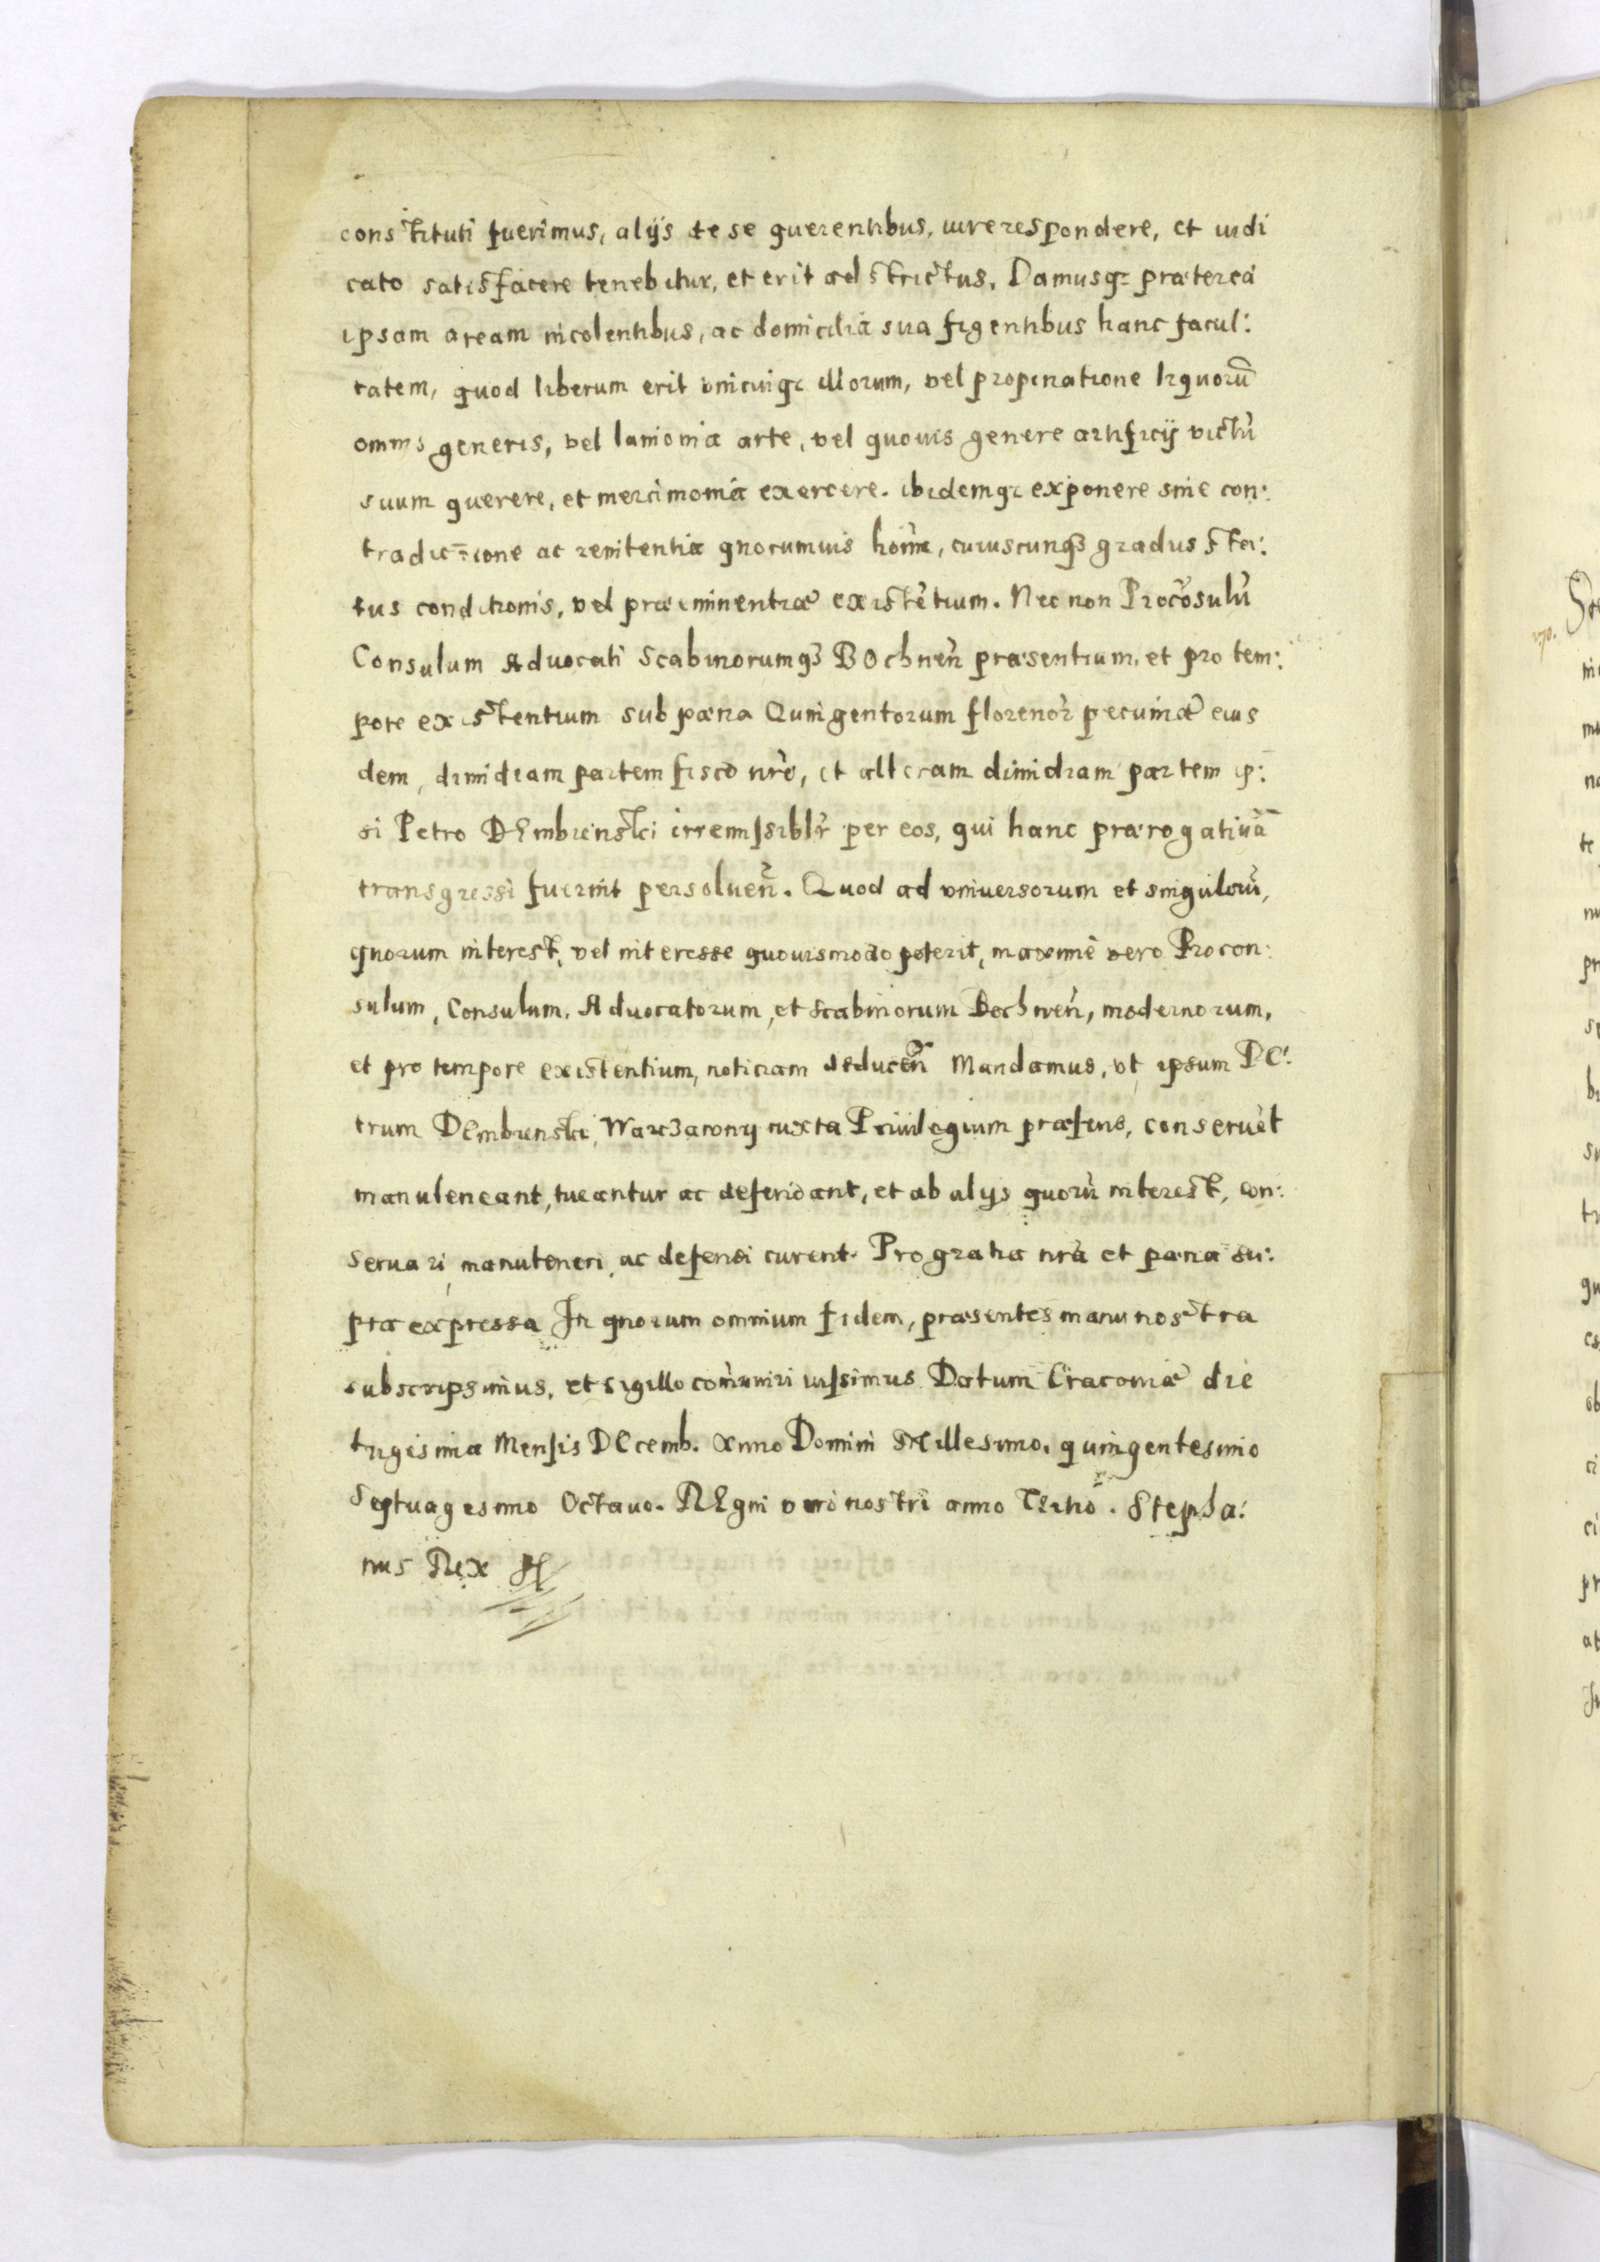 constituti fuerimus, alijs de se querentibus, iure respondere, et iudi
cato satisfacere tenebitur, et erit adstrictus. Damusq₃ præterea
ipsam aream incolentibus, ac domicilia sua figentibus hanc facul:
tatem, quod liberum erit vnicuiq₃ illorum, vel propinatione liquorū
omnis generis, vel lanionia arte, vel quouis genere artificij victū
suum querere, et mercimonia exercere. ibidemq₃ exponere sine con:
tradictione ac renitentia quorumuis hom̃, cuiuscunq₃ gradus sta:
tus conditionis, vel præeminentiæ existētium. Nec non Procōsulū
Consulum Aduocati Scabinorumq₃ Bochnen̄ præsentium, et pro tem:
pore existentium sub pæna Quingentorum florenor̄ pecuniæ eius
dem, dimidiam partem fisco nrō, et alteram dimidiam partem ip:
si Petro Dembienski irremissiblr̄ per eos, qui hanc prærogatiuā
transgressi fuerint persoluen̄. Quod ad vniuersorum et singulorū,
quorum interest, vel interesse quouismodo poterit, maxime vero Procon:
sulum, Consulum, Aduocatorum, et Scabinorum Bochnen̄, modernorum,
et pro tempore existentium, noticiam deducen̄ Mandamus, vt ipsum Pe:
trum Dembinski, Warzawny iuxta Priuilegium præsens, conseruēt
manuteneant, tueantur ac defendant, et ab alijs quorū interest, con:
seruari, manuteneri, ac defendi curent. Pro gratia nrā et pæna su:
pra expressa In quorum omnium fidem, præsentes manu nostra
subscripsimus, et sigillo com̄uniri iussimus Datum Cracouiæ die
trigesima Mensis Decemb. Anno Domini Millesimo, quingentesimo
Septuagesimo Octauo. Regni vero nostri anno Tertio. Stepha:
nus Rex